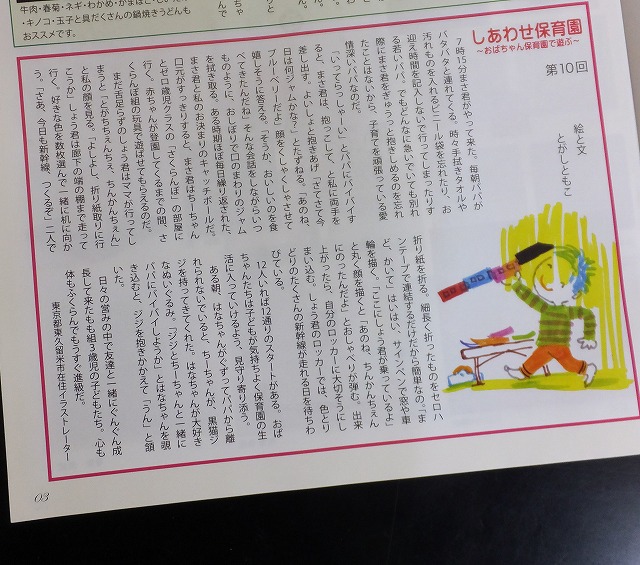 牛肉・春菊・ネギ・わかめ・かまぼこ・
・キノコ・玉子と具だくさんの鍋焼きうどんも
おススメです。
しあわせ保育園
～おばちゃん保育園で遊ぶ～
第10回
絵と文
とがしともこ
7時15分まさ君がやって来た。毎朝パパが
バタバタと連れてくる。時々手拭きタオルや
汚れものを入れるビニール袋を忘れたり、お
迎え時間を記入しないで行ってしまったりす
る若いパパ。でもどんなに急いでいても別れ
際にまさ君をぎゅうっと抱きしめるのを忘れ
たことはないから、子育てを頑張っている愛
情深いパパなのだ。
「いってらっしゃーい」とパパにバイバイす
ると、まさ君は、抱っこして、と私に両手を
差し出す。よいしょと抱きあげ「さてさて今
日は何ジャムかな？」とたずねる。「あのね、
ブルーベリーだよ」顔をくしゃくしゃさせて
嬉しそうに答える。「そうか、おいしいのを食
べてきたんだね」そんな会話をしながらいつ
ものように、おしぼりで口のまわりのジャム
を拭き取る。ある時期ほぼ毎日繰り返された、
まさ君と私のお決まりのキャッチボールだ。
口元がすっきりすると、まさ君はちーちゃん
とゼロ歳児クラスの「さくらんぼ」の部屋に
行く。赤ちゃんが登園してくるまでの間、さ
くらんぼ組の玩具で遊ばせてもらえるのだ。
まだ舌足らずのしょう君はママが行ってし
まうと「とがちちぇんちぇ、ちんかんちぇん」
と私の顔を見る。「よしよし、折り紙取りに行
こうか」しょう君は廊下の端の棚まで走って
行く。好きな色を数枚選んで一緒に机に向か
う。「さあ、今日も新幹線、つくるぞ」二人で
折り紙を折る。細長く折ったものをセロハ
ンテープで連結するだけだから簡単なの。「ま
ど、かいて」はいはい、サインペンで窓や車
輪を描く。「ここにしょう君が乗っているよ」
と丸く顔を描くと「あのね、ちんかんちぇん
にのったんだよ」とおしゃべりが弾む。出来
上がったら、自分のロッカーに大切そうにし
まい込む。しょう君のロッカーでは、色とり
どりのたくさんの新幹線が走れる日を待ちわ
びている。
12人いれば12通りのスタートがある。おば
ちゃんたちは子どもが気持ちよく保育園の生
活に入っていけるよう、見守り寄り添う。
ある朝、はなちゃんがぐずってパパから離
れられないでいると、ちーちゃんが、黒猫ジ
ジを持ってきてくれた。はなちゃんが大好き
なぬいぐるみ。「ジジとちーちゃんと一緒に
パパにバイバイしようか」とはなちゃんを覗
き込むと、ジジを抱きかかえて「うん」と頷
いた。
日々の営みの中で友達と一緒にぐんぐん成
長して来たもも組3歳児の子どもたち。心も
体もふくらんでもうすぐ進級だ。
東京都東久留米市在住イラストレーター
03